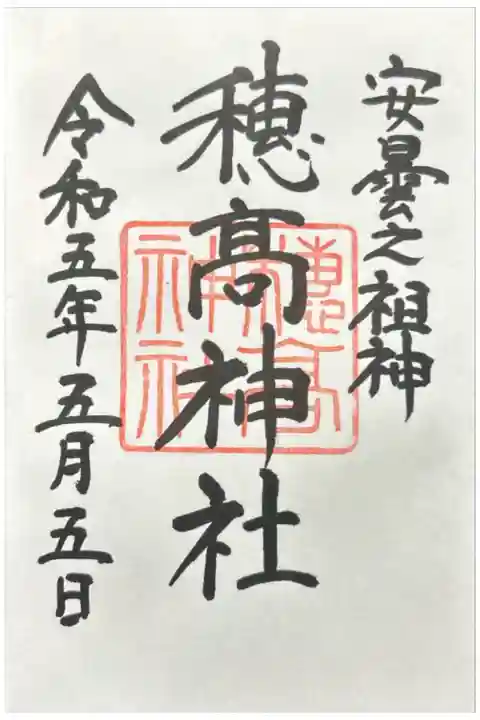 安曇之祖神
穂髙神社
穂高神社
令和五年五月五日